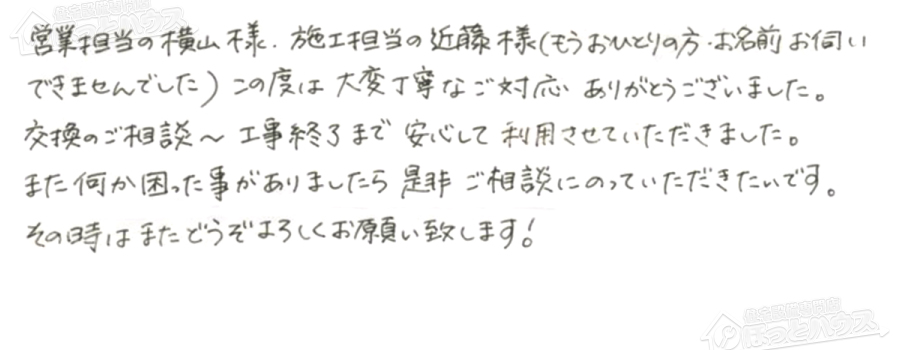 営業担当の横山様．施工担当の近藤様(もうおひとりの方・お名前お伺い
できませんでした)この度は大変丁寧なご対応ありがとうございました。
交換のご相談〜工事終了まで安心して利用させていただきました。
また何か困った事がありましたら是非ご相談にのっていただきたいです。
その時はまたどうぞよろしくお願い致します!
住宅設備専門店
ほっとハウス